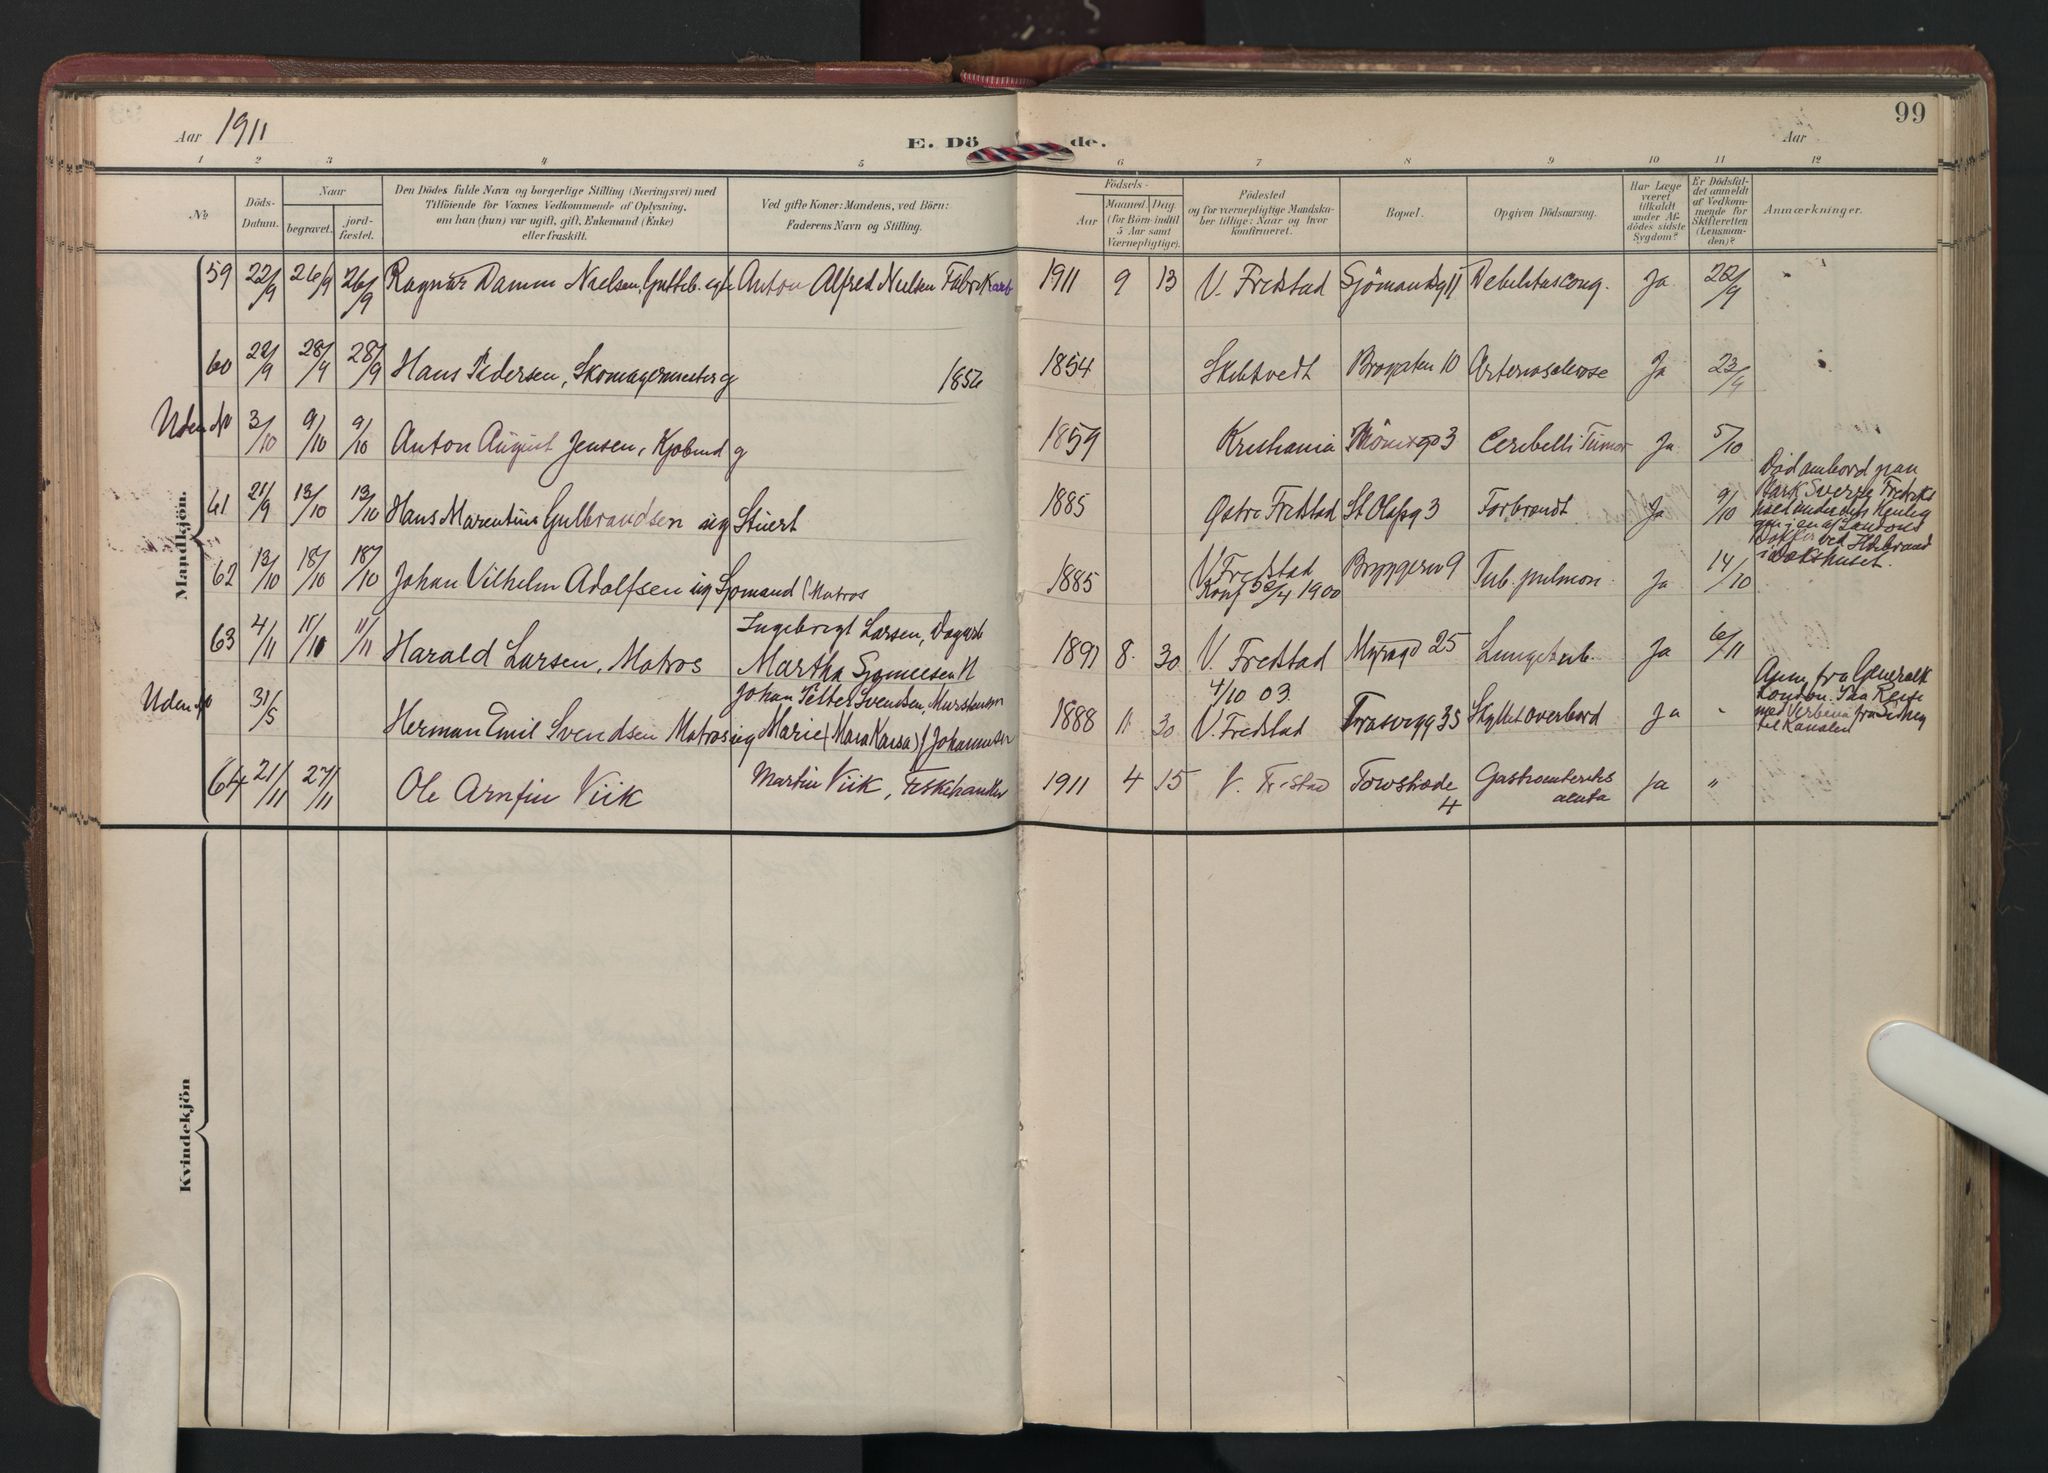 99
Aar 1911
E. Dö de.
Aar
1 2 3 4 5 6 7 8 9 10 11 12
№
Döds-Datum.
Naar
begravet.
jord-fæstet.
Den Dödes fulde Navn og borgerlige Stilling (Næringsvei) med
Tilföiende for Voxnes Vedkommende af Oplysning,
om han (hun) var ugift, gift, Enkemand (Enke)
eller fraskilt.
Ved gifte Koner: Mandens, ved Börn:
Faderens Navn og Stilling.
Födsels-
Aar
Maaned. Dag.
(for Börn indtil
5 Aar samt
Værnepligtige).
Födested
og for værnepligtige Mandska-
ber tillige: Naar og hvor
konfirmeret.
Bopæl.
Opgiven Dödsaarsag.
Har Læge
været
tilkaldt
under Af-
dödes sidste
Sygdom?
Er Dödsfal-
det anmeldt
af Vedkom-
mende for
Skifteretten
(Lensman-
den)?
Anmærkninger.
Mandkjön.
59 22/9 26/9 26/9 Ragnar Damm Nielsen, Anton Alfred Nielsen Fabrikarb 1911 9 13 V. Fredstad Sjömandsg 11 Debilitas cong. Ja 22/9 "
60 22/9 28/9 28/9 Hans Pedersen, Skomagermester g 1856 1854 Skibtvedt Brogaten 10 Arteriosclerose Ja 23/9 "
Uden № 3/10 9/10 9/10 Anton August Jensen, Kjøbmd g 1859 Kristiania 3 Cerebelli Tumor Ja 5/10
61 21/9 13/10 13/10 Hans Marentius Gulbrandsen ug Stuert 1885 Østre Fredstad St Olafsg 3 Forbrændt Ja 9/10
Död ombord paa
Bark Sverre Fredriks
Londons
ved Ildebrand
i Dækshuset.
62 13/10 18/10 18/10 Johan Vilhelm Adolfsen ug Sjömand (Matros 1885 V. Fredstad
Konf 1900 Bryggeriv 9 Tub. pulmon. Ja 14/10
63 4/11 11/11 Harald Larsen, Matros Ingebrigt Larsen, Dagarb
Martha 1891 8 30 V. Fredstad
4/10 03. Myragd 25 Lungetub. Ja 6/11
Uden № 31/5 Herman Emil Svendsen Matros ug Johan Petter Svendsen, Murermester
Marie (Johannesen 1888 11 30 V. Fredstad Trosvigg 35 Skyllet overbord Ja "
Anm. fra Generalk
London. Paa Reise
med Verbena fra Sidney
til Kanalen
64 21/11 27/11 Ole Arnfin Viik Martin Viik, Fiskehandler 1911 4 15 V. Fr.stad Torvstræde
4 Gastroenteritis
acuta Ja "
Kvindekjön